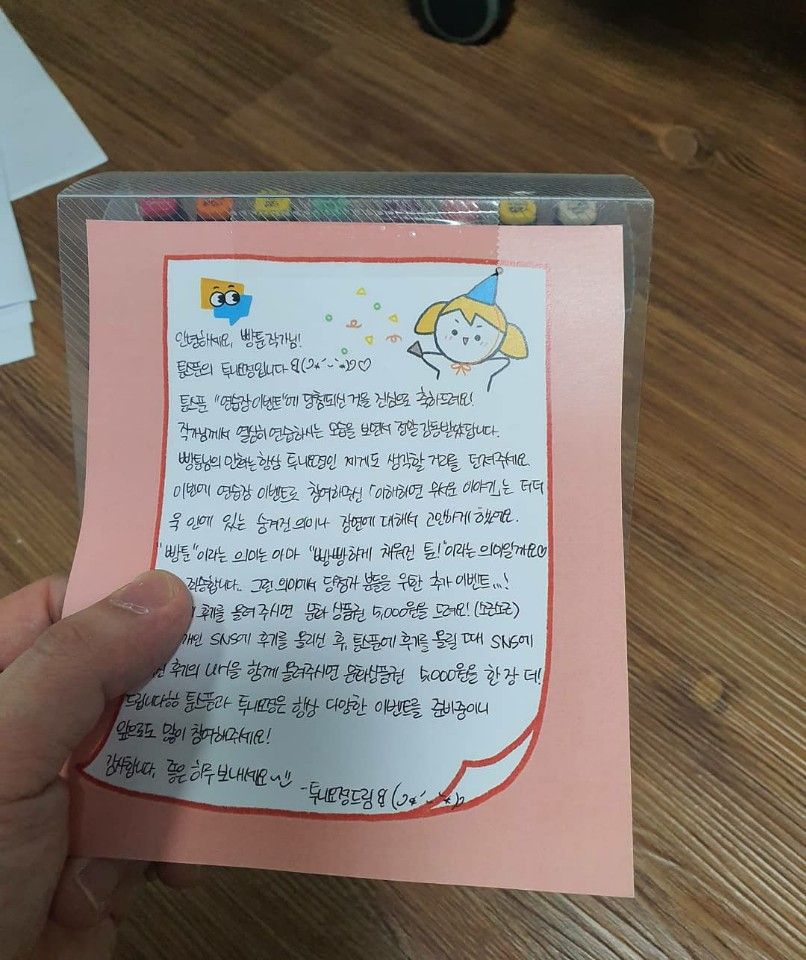 안녕하세요, 빵툰작가님!
툰스푼의 투니요정입니다 ♡
툰스푼 "연습장이벤트"에 당첨되신 것을 진심으로 축하드려요!
작가님께서 열심히 연습하시는 모습을 보면서 정말 감동받았답니다.
빵툰님의 만화는 항상 투니요정인 제게도 생각할 거리를 던져주세요.
이번에 연습장 이벤트로 참여하여주신 「이해하면 무서운 이야기」는 더더
욱 안에 있는 숨겨진 의미나 장면에 대해서 고민하게 했어요.
"빵툰"이라는 의미는 아마 "빵빵하게 채워진 툰!"이라는 의미일까요♡
죄송합니다.. 그런 의미에서 당첨자 분들을 위한 추가 이벤트...!
후기를 올려주시면 문화상품권 5,000원을 드려요! (소근소근)
개인 SNS에 후기를 올리신 후, 툰스푼에 후기를 올릴 때 SNS에
후기의 URL을 함께 올려주시면 문화상품권 5,000원을 한 장 더!
드립니다ㅎㅎ 툰스푼과 투니요정은 항상 다양한 이벤트를 준비중이니
앞으로도 많이 참여해주세요!
감사합니다. 좋은 하루 보내세요~
-투니요정드림